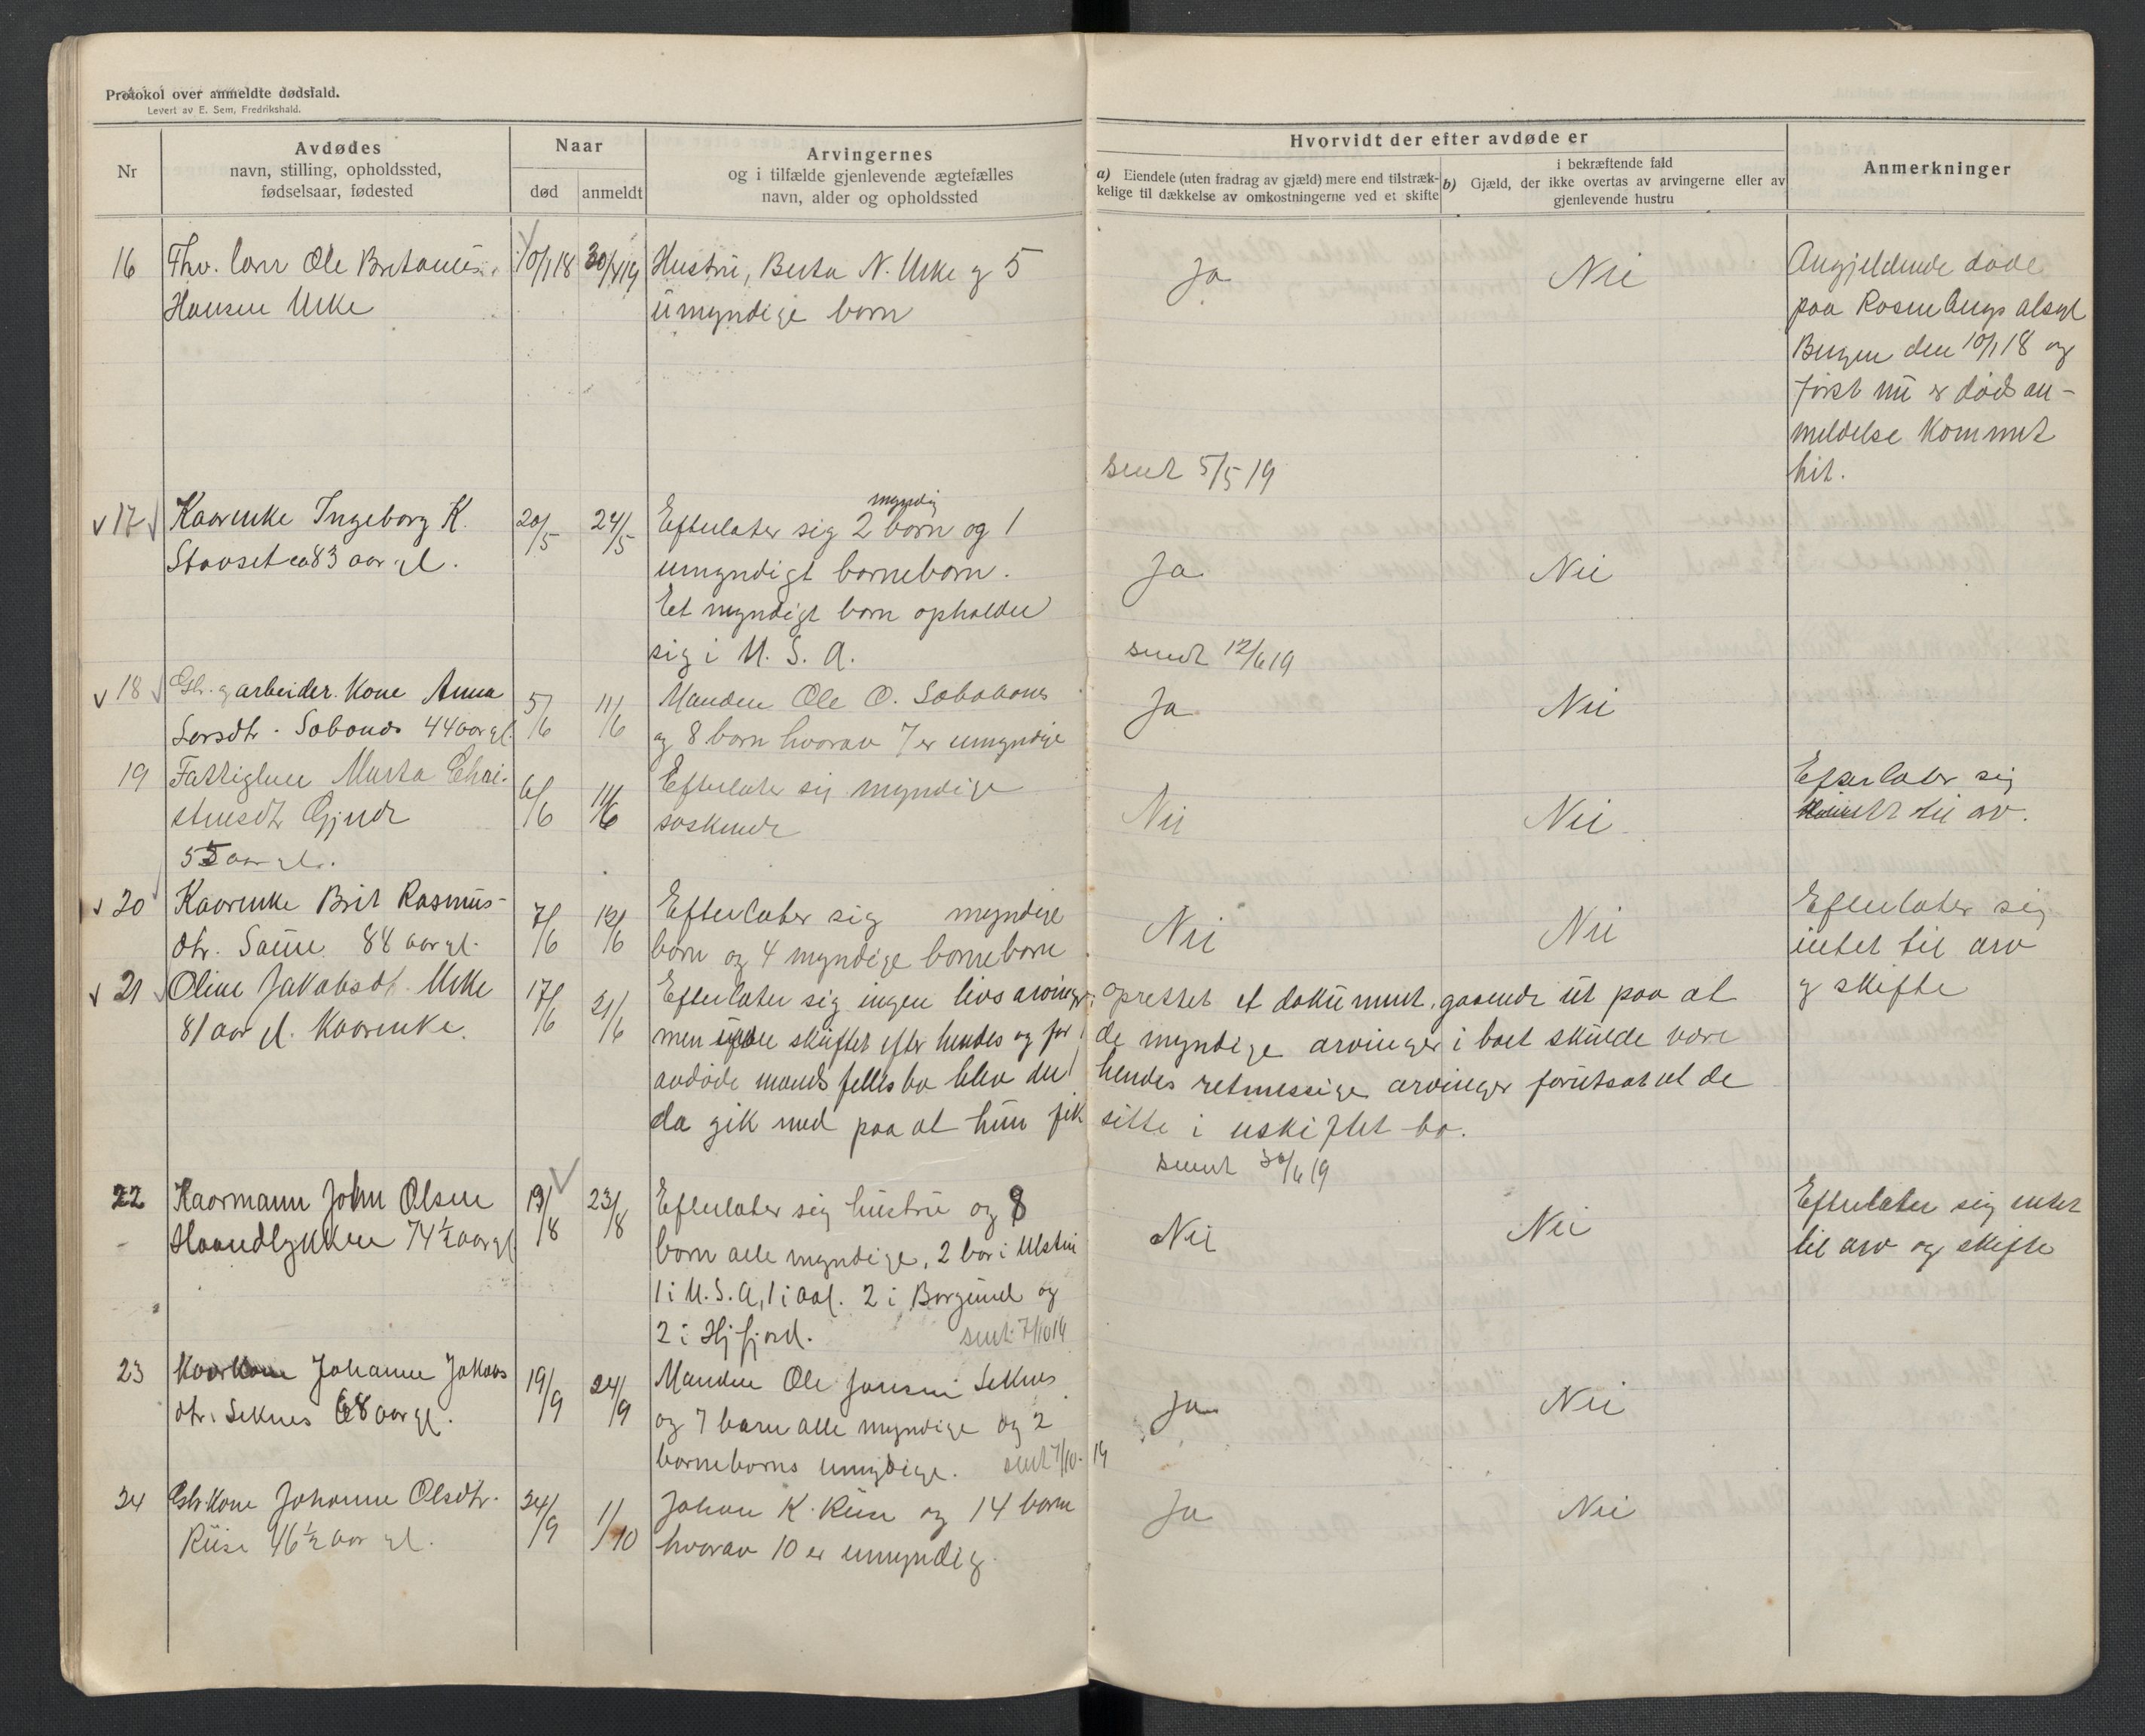 Protokol over anmeldte dødsfald.
Levert av E. Sem, Fredrikshald.
Nr
Avdødes
navn, stilling, opholdssted,
fødselsaar, fødested
Naar
død
anmeldt
Arvingernes
og i tilfælde gjenlevende ægtefælles
navn, alder og opholdssted
Hvorvidt der efter avdøde er
a) Eiendele (uten fradrag av gjæld) mere end tilstræk-
kelige til dækkelse av omkostningerne ved et skifte
i bekræftende fald
b) Gjæld, der ikke overtas av arvingerne eller av
gjenlevende hustru
Anmerkninger
16 Fhv. Ole
Hansen Urke
10/1 18
Hustru, Berta N. Urke g 5
umyndige born
Ja
Nei
Angjeldende døde
paa Rosenbergs
Bergen den 10/1 18 og
først nu er dødsan-
meldelse kommet
hit.
sent 5/5 19
17 Kaarenke Ingeborg K.
Stavset ca 83 aar gl.
20/5
24/5
myndig
Efterlater sig 2 born og 1
umyndigt barnebarn.
Eet myndigt barn opholder
sig i U. S. A.
Ja
Nei
sendt 12/6 19
18 Gbr. g arbeider. Kone Anna
Larsdtr. 44 aar gl.
5/6
11/6
Manden Ole O.
og 8 born hvorav 7 er umyndige
Ja
Nei
19 Fattiglem Marta Chri-
stensdtr
55 aar gl.
6/6
11/6
Efterlater sig myndige
søskende
Nei
Nei
Efterlater sig
til arv.
20 Kaarenke Brit Rasmus-
dtr. 88 aar gl.
7/6
12/6
Efterlater sig myndige
born og 4 myndige borneborn
Nei
Nei
Efterlater sig
intet til arv
g skifte
21 Oline Jakobsdt. Urke
81 aar gl. Kaarenke.
17/6
21/6
Efterlater sig ingen livsarvinger,
men skiftet efter hendes og før
avdøde mands fellesbo blev der
da gik med paa at hun fik
oprettet et dokument, gaaende ut paa at
de myndige arvinger i boet skulde være
hendes retmessige arvinger forutsat at de
sitte i uskiftet bo.
sendt 30/6 19
22 Kaarmann John Olsen
Haandlykken 74 ½ aar gl.
19/8
23/8
Efterlater sig hustru og 8
born alle myndige, 2 bor i Ulstein
1 i U.S.A, 1 i Aal. 2 i Borgund og
2 i Hj.fjord.
sent 7/10 19
Nei
Nei
Efterlater sig intet
til arv og skifte
23 Kaarkone Johanne Jakobs
dtr. Seknes 68 aar gl.
19/9
24/9
Manden Ole Jensen Seknes
og 7 barn alle myndige og 2
borneborns umydige. sent 7/10-19
Ja
Nei
24 Gbr. kone Johanne Olsdtr.
Riise 46 ½ aar gl.
24/9
1/10
Johan K. Riise og 14 born
hvorav 10 er umyndig.
Ja
Nei